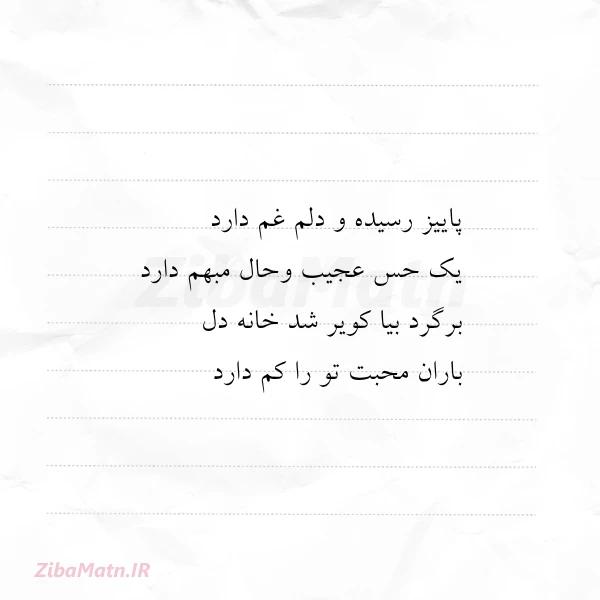 پاییز رسیده و دلم غم دارد
یک حس عجیب وحال مبهم دارد
برگرد بیا کویر شد خانه دل
باران محبت تو را کم دارد
ZibaMatn
ZibaMatn.IR